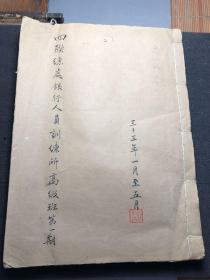 四聯總處銀行人員訓練所高級班第一期
三十三年一月至五月